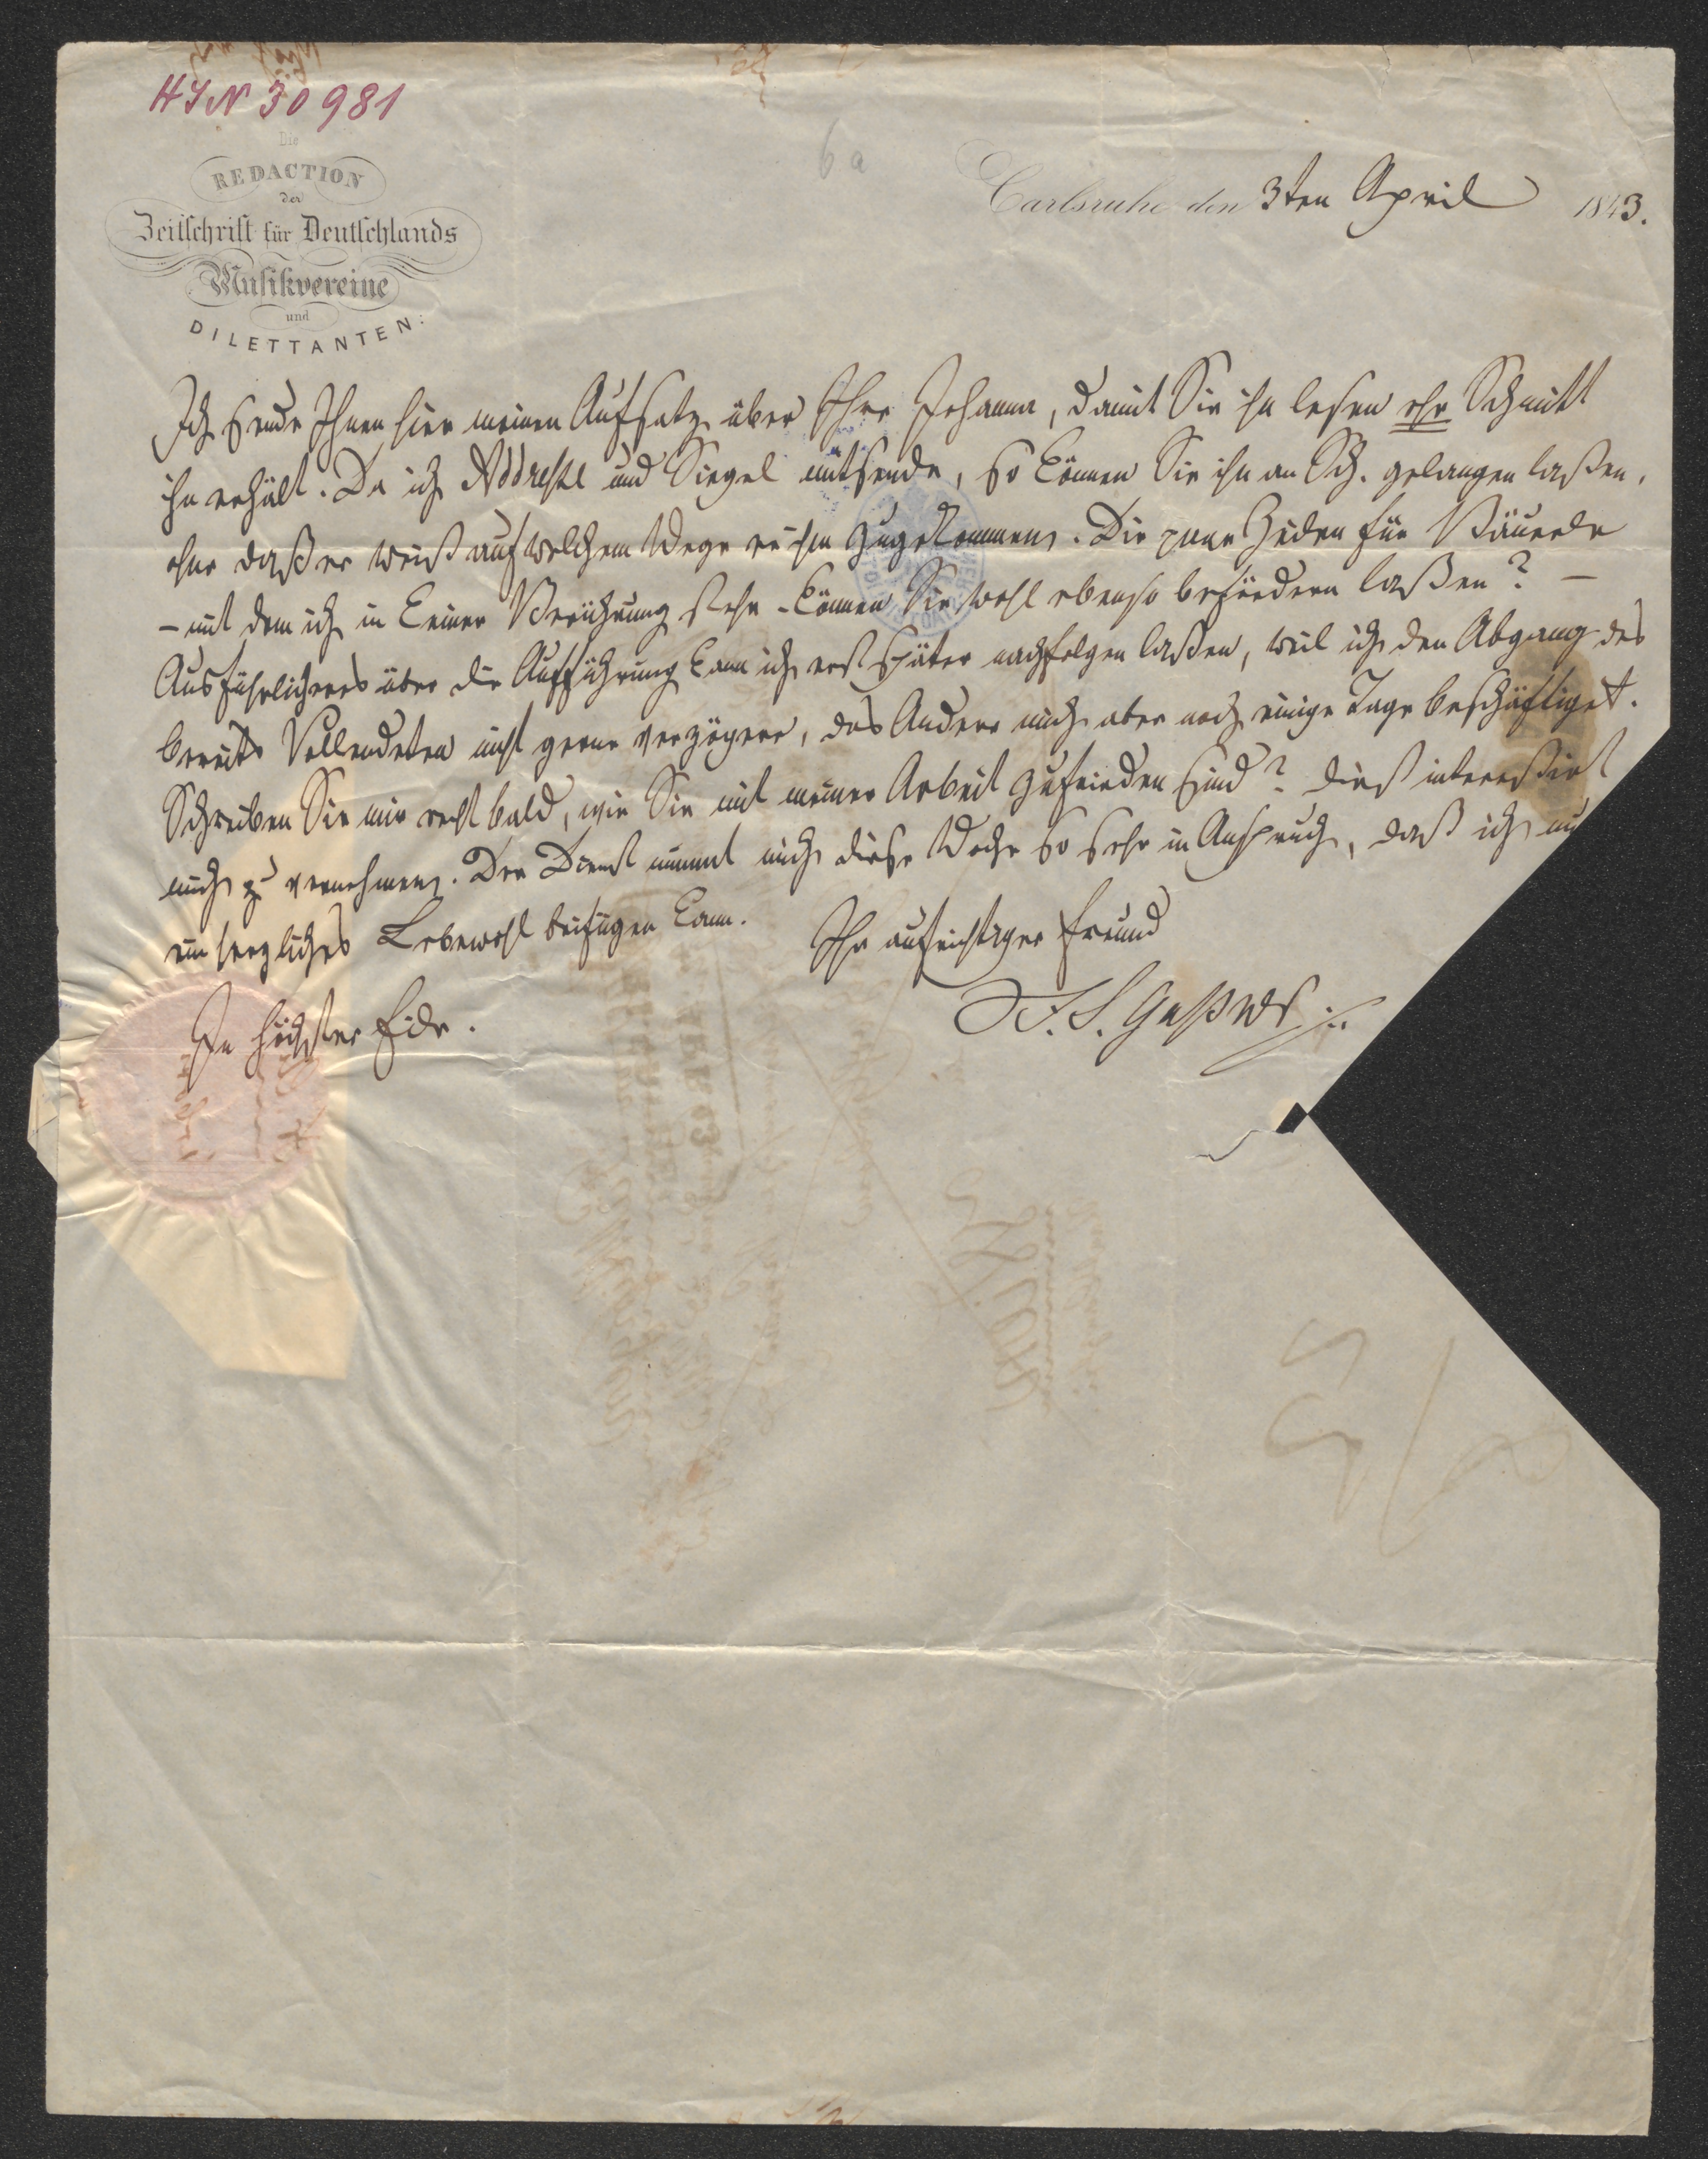 HIN 30981
6a
Die
REDACTION
der
Zeitschrift für Deutschlands
Musikvereine
und
DILETTANTEN.
Carlsruhe den 3ten April 1843.
Ich sende Ihnen hier meinen Aufsatz über Ihre Johanna, damit Sie ihn lesen ehe Schmitt
ihn erhält. Da ich Addresse und Siegel mitsende, so können Sie ihn an Sch. gelangen laßen,
ohne daß er weiß auf welchem Wege er ihm zugekommen. Die paar Zeilen für Bäuerle
– mit dem ich in keiner Berührung stehe – können Sie wohl ebenso befördern laßen? –
Ausführlicheres über die Aufführung kann ich erst später nachfolgen laßen, weil ich den Abgang des
bereits Vollendeten nicht gerne verzögere, das Andere mich aber noch einige Tage beschäftiget.
Schreiben Sie mir recht bald, wie Sie mit meiner Arbeit zufrieden sind? dieß intereßirt
mich zu vernehmen. Der Dienst nimmt mich diese Woche so sehr in Anspruch, daß ich nu
ein herzliches Lebewohl beifügen kann.
Ihr aufrichtiger Freund
F. S. Gaßner
In höchster Eile.